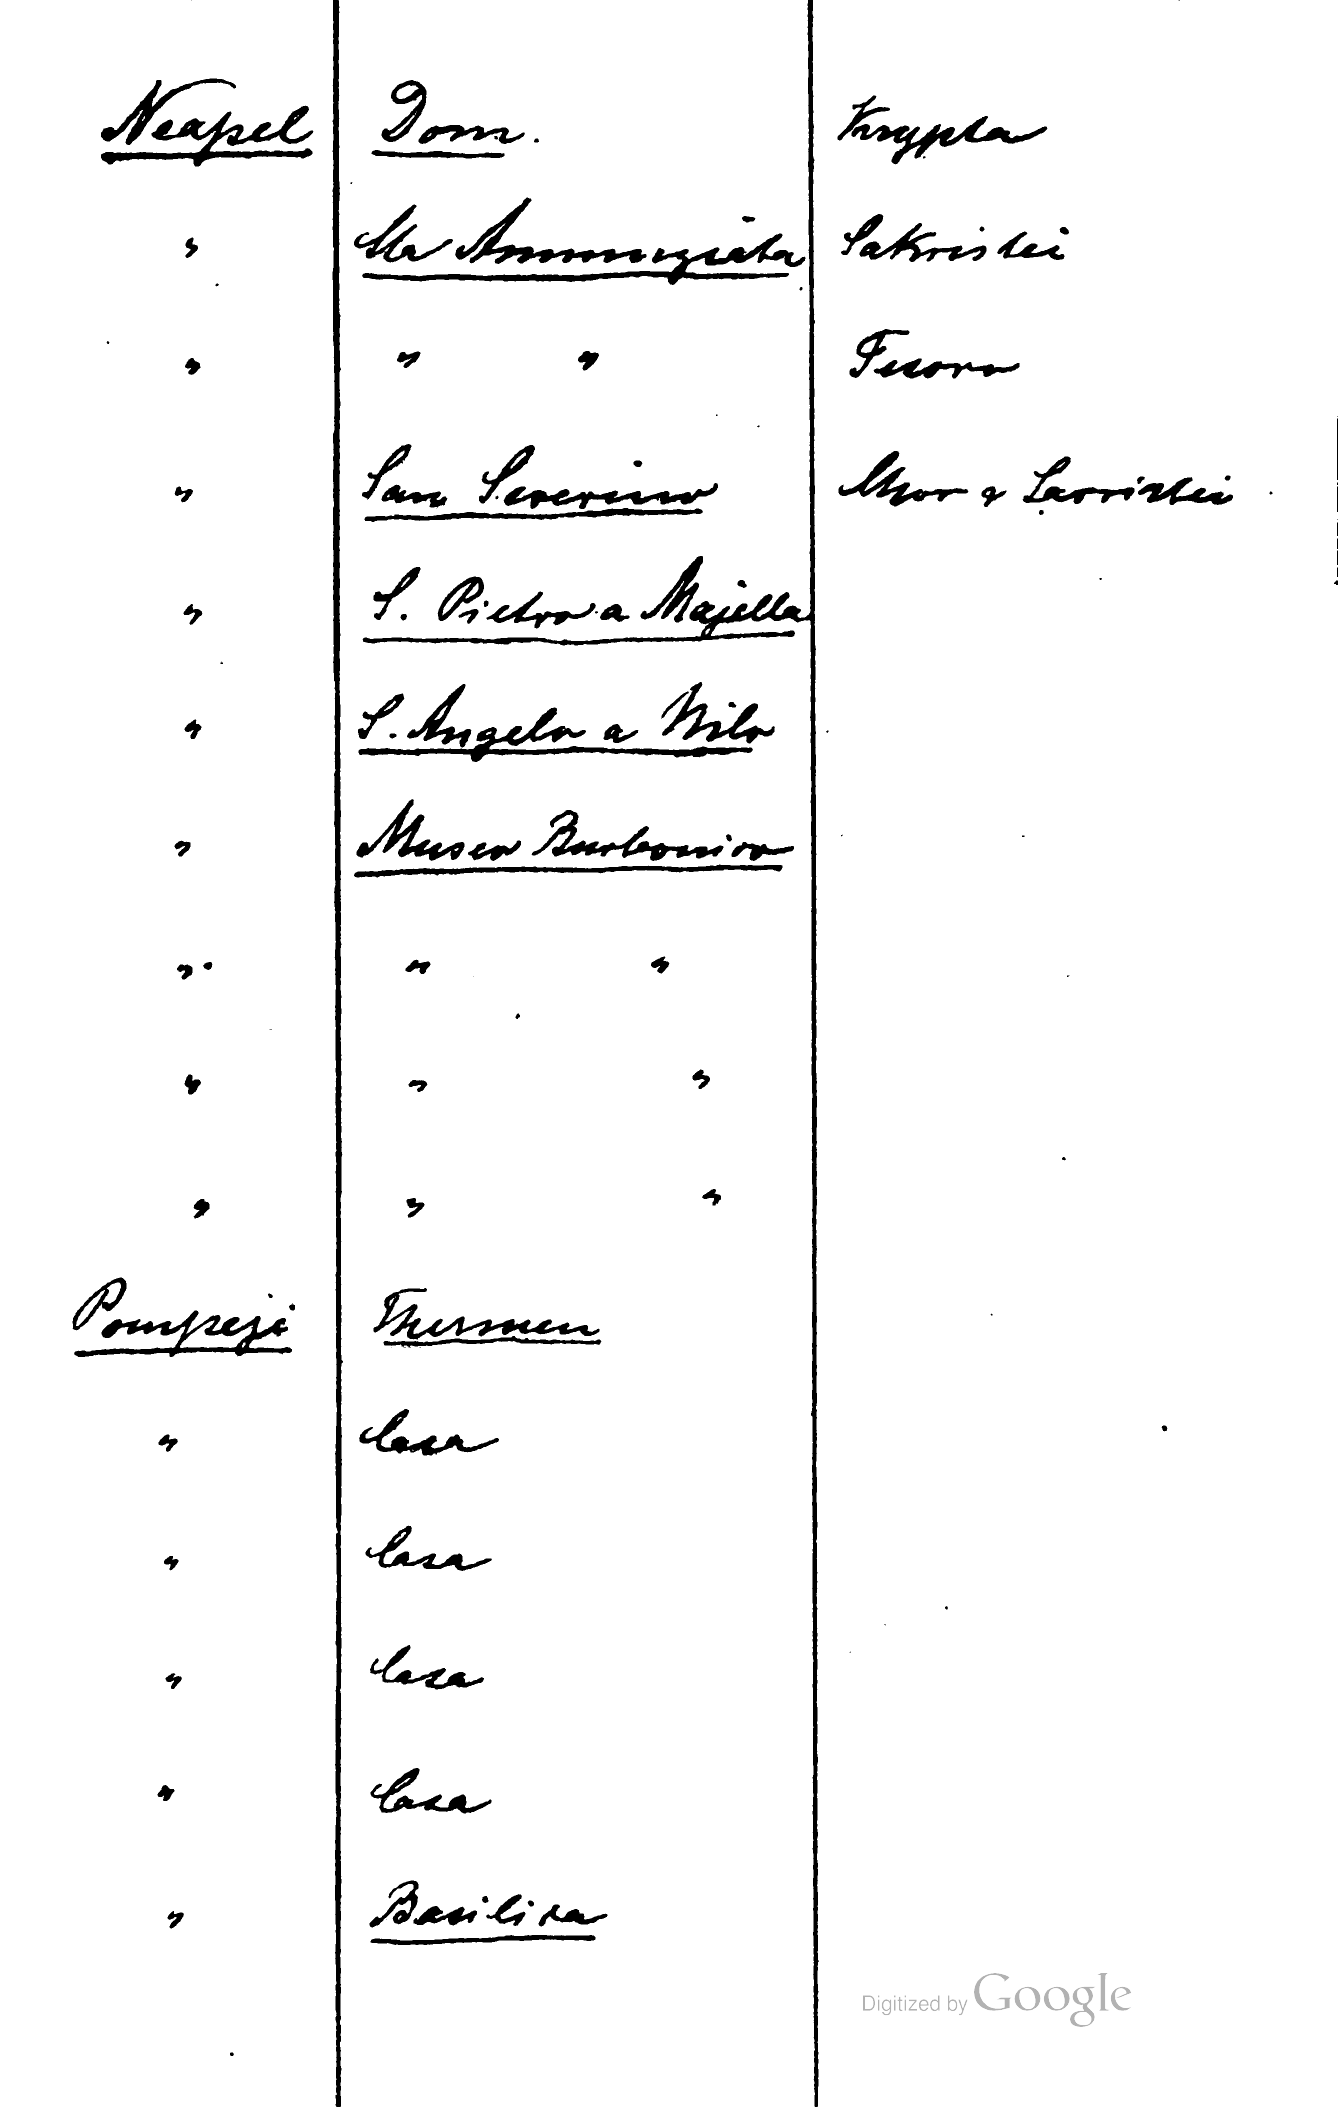 Neapel Dom. Krypta
" Sta Annunziata Sakristei
" " " Tesoro
" San Severino Chor & Sacristei
" S. Pietro a Majella
" S. Angelo a Nilo
" Museo Burbonico
" " "
" " "
" " "
Pompeji Thermen
" Casa
" Casa
" Casa
" Casa
" Basilica
Digitized by Google